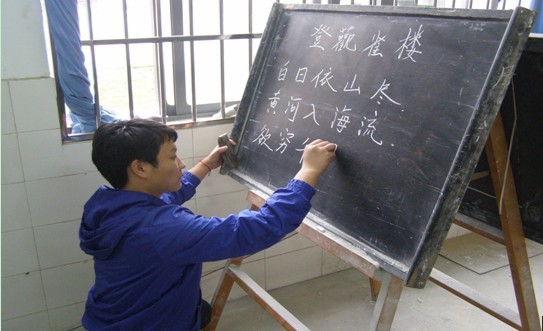 登觀雀楼
白日依山尽.
黄河入海流.
欲穷